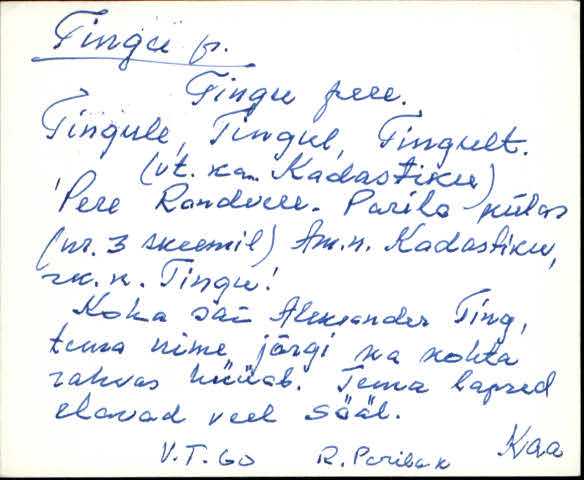 Tingu p.
Tingu pere.
Tingule, Tingul, Tingult.
(vt. ka Kadastiku)
Pere Randvere - Parila külas
(nr. 3 skeemil) Am.n. Kadastiku,
rk. n. Tingu!
Koha sai Aleksander Ting,
tema nime järgi ka kohta
rahvas hüüab. Tema lapsed
elavad veel sääl.
V.T. 60 R. Parila k Kaa